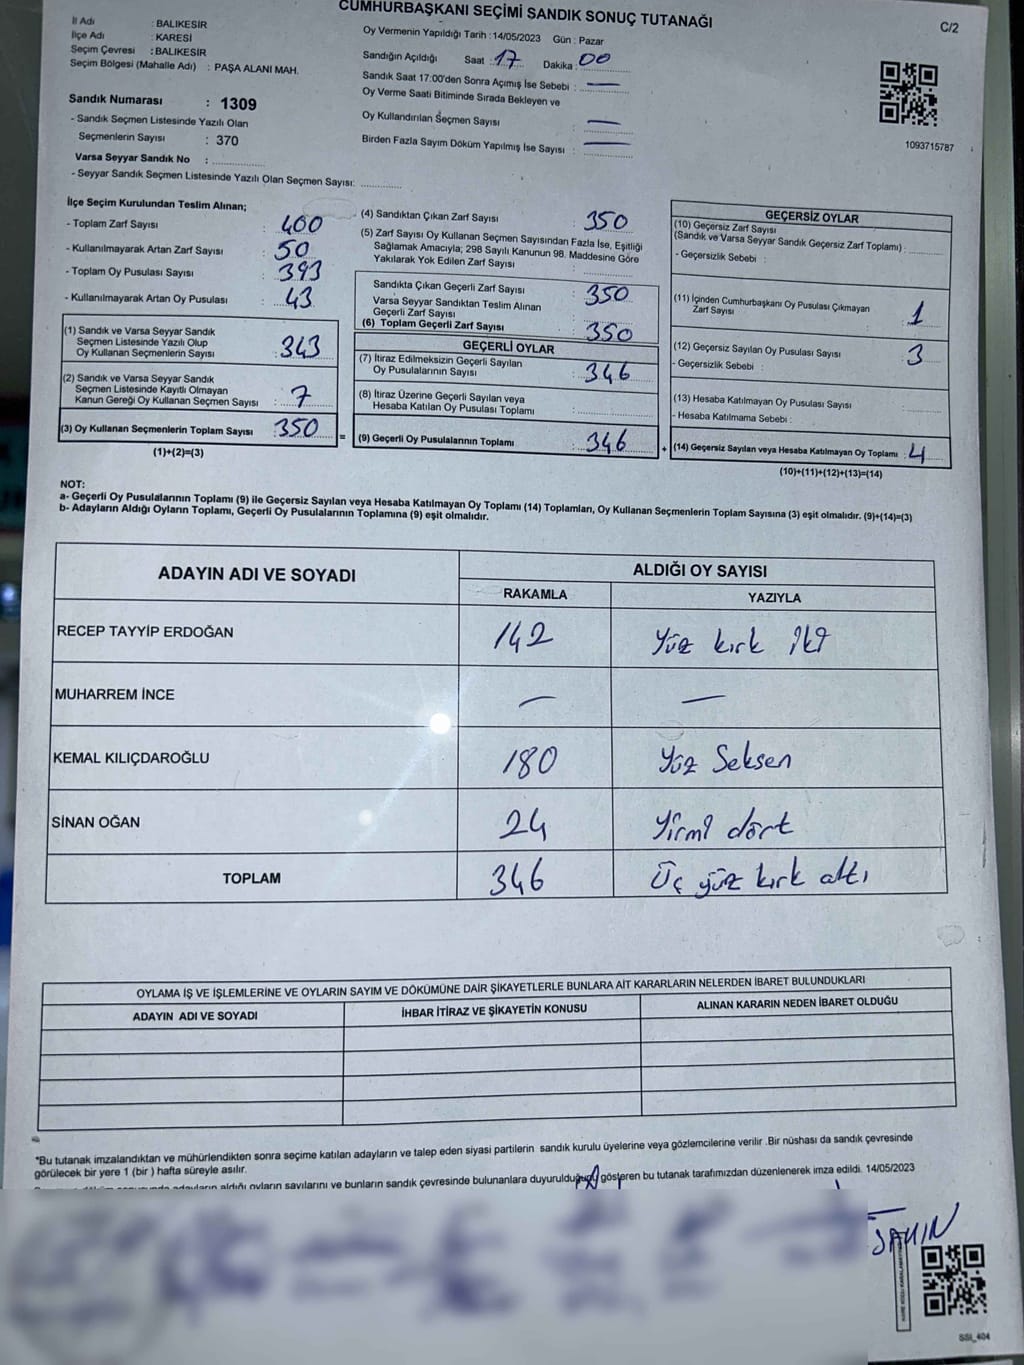 CUMHURBAŞKANI SEÇİMİ SANDIK SONUÇ TUTANAĞI
C/2
İl Adı : BALIKESİR
İlçe Adı : KARESİ
Seçim Çevresi : BALIKESİR
Seçim Bölgesi (Mahalle Adı) : PAŞA ALANI MAH.
Sandık Numarası : 1309
- Sandık Seçmen Listesinde Yazılı Olan
Seçmenlerin Sayısı : 370
Varsa Seyyar Sandık No :
- Seyyar Sandık Seçmen Listesinde Yazılı Olan Seçmen Sayısı:
Oy Vermenin Yapıldığı Tarih :14/05/2023 Gün : Pazar
Sandığın Açıldığı Saat : 17 Dakika : 00
Sandık Saat 17:00'den Sonra Açımış İse Sebebi : —
Oy Verme Saati Bitiminde Sırada Bekleyen ve
Oy Kullandırılan Seçmen Sayısı : —
Birden Fazla Sayım Döküm Yapılmış İse Sayısı : —
1093715787
İlçe Seçim Kurulundan Teslim Alınan;
- Toplam Zarf Sayısı : 400
- Kullanılmayarak Artan Zarf Sayısı : 50
- Toplam Oy Pusulası Sayısı : 393
- Kullanılmayarak Artan Oy Pusulası : 43
(1) Sandık ve Varsa Seyyar Sandık
Seçmen Listesinde Yazılı Olup
Oy Kullanan Seçmenlerin Sayısı : 343
(2) Sandık ve Varsa Seyyar Sandık
Seçmen Listesinde Kayıtlı Olmayan
Kanun Gereği Oy Kullanan Seçmen Sayısı : 7
(3) Oy Kullanan Seçmenlerin Toplam Sayısı : 350
(1)+(2)=(3)
=
(4) Sandıktan Çıkan Zarf Sayısı : 350
(5) Zarf Sayısı Oy Kullanan Seçmen Sayısından Fazla İse, Eşitliği
Sağlamak Amacıyla; 298 Sayılı Kanunun 98. Maddesine Göre
Yakılarak Yok Edilen Zarf Sayısı :
Sandıkta Çıkan Geçerli Zarf Sayısı : 350
Varsa Seyyar Sandıktan Teslim Alınan
Geçerli Zarf Sayısı :
(6) Toplam Geçerli Zarf Sayısı : 350
GEÇERLİ OYLAR
(7) İtiraz Edilmeksizin Geçerli Sayılan
Oy Pusulalarının Sayısı : 346
(8) İtiraz Üzerine Geçerli Sayılan veya
Hesaba Katılan Oy Pusulası Toplamı :
(9) Geçerli Oy Pusulalarının Toplamı : 346
+
GEÇERSİZ OYLAR
(10) Geçersiz Zarf Sayısı
(Sandık ve Varsa Seyyar Sandık Geçersiz Zarf Toplamı) :
- Geçersizlik Sebebi :
(11) İçinden Cumhurbaşkanı Oy Pusulası Çıkmayan
Zarf Sayısı : 1
(12) Geçersiz Sayılan Oy Pusulası Sayısı : 3
- Geçersizlik Sebebi :
(13) Hesaba Katılmayan Oy Pusulası Sayısı :
- Hesaba Katılmama Sebebi :
(14) Geçersiz Sayılan veya Hesaba Katılmayan Oy Toplamı : 4
(10)+(11)+(12)+(13)=(14)
NOT:
a- Geçerli Oy Pusulalarının Toplamı (9) ile Geçersiz Sayılan veya Hesaba Katılmayan Oy Toplamı (14) Toplamları, Oy Kullanan Seçmenlerin Toplam Sayısına (3) eşit olmalıdır. (9)+(14)=(3)
b- Adayların Aldığı Oyların Toplamı, Geçerli Oy Pusulalarının Toplamına (9) eşit olmalıdır.
ADAYIN ADI VE SOYADI ALDIĞI OY SAYISI
RAKAMLA YAZIYLA
RECEP TAYYİP ERDOĞAN 142 Yüz kırk iki
MUHARREM İNCE — —
KEMAL KILIÇDAROĞLU 180 Yüz Seksen
SİNAN OĞAN 24 Yirmi dört
TOPLAM 346 Üç yüz kırk altı
OYLAMA İŞ VE İŞLEMLERİNE VE OYLARIN SAYIM VE DÖKÜMÜNE DAİR ŞİKAYETLERLE BUNLARA AİT KARARLARIN NELERDEN İBARET BULUNDUKLARI
ADAYIN ADI VE SOYADI İHBAR İTİRAZ VE ŞİKAYETİN KONUSU ALINAN KARARIN NEDEN İBARET OLDUĞU
*Bu tutanak imzalandıktan ve mühürlendikten sonra seçime katılan adayların ve talep eden siyasi partilerin sandık kurulu üyelerine veya gözlemcilerine verilir .Bir nüshası da sandık çevresinde
görülecek bir yere 1 (bir ) hafta süreyle asılır.
adayların aldığı oyların sayılarını ve bunların sandık çevresinde bulunanlara duyurulduğunu gösteren bu tutanak tarafımızdan düzenlenerek imza edildi. 14/05/2023
SSI_404